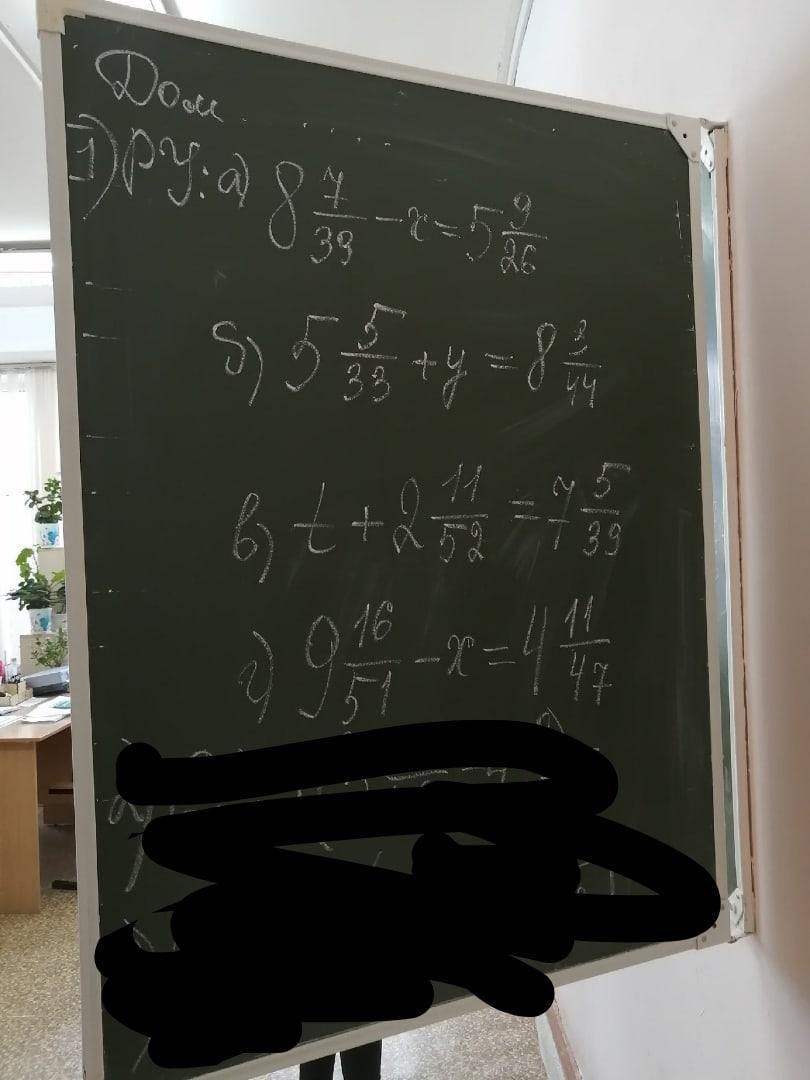 Дом
1) РУ: а) 8 7/39 - x = 5 9/26
б) 5 5/33 + y = 8 3/44
в) t + 2 11/52 = 7 5/39
г) 9 16/51 - x = 4 11/47